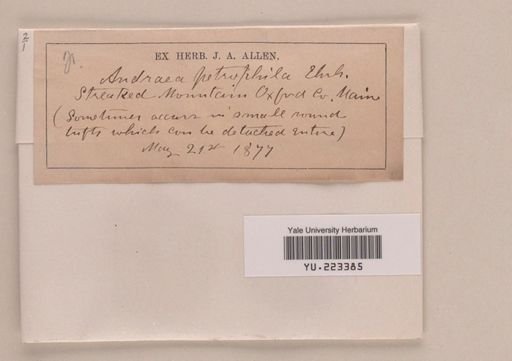 2/1
EX HERB. J. A. ALLEN.
Andraea petrophila Ehrh.
Streaked Mountain Oxford Co. Maine
(Sometimes occurs in small round
tufts which can be detached entire)
May 21st 1877
Yale University Herbarium
YU.223385